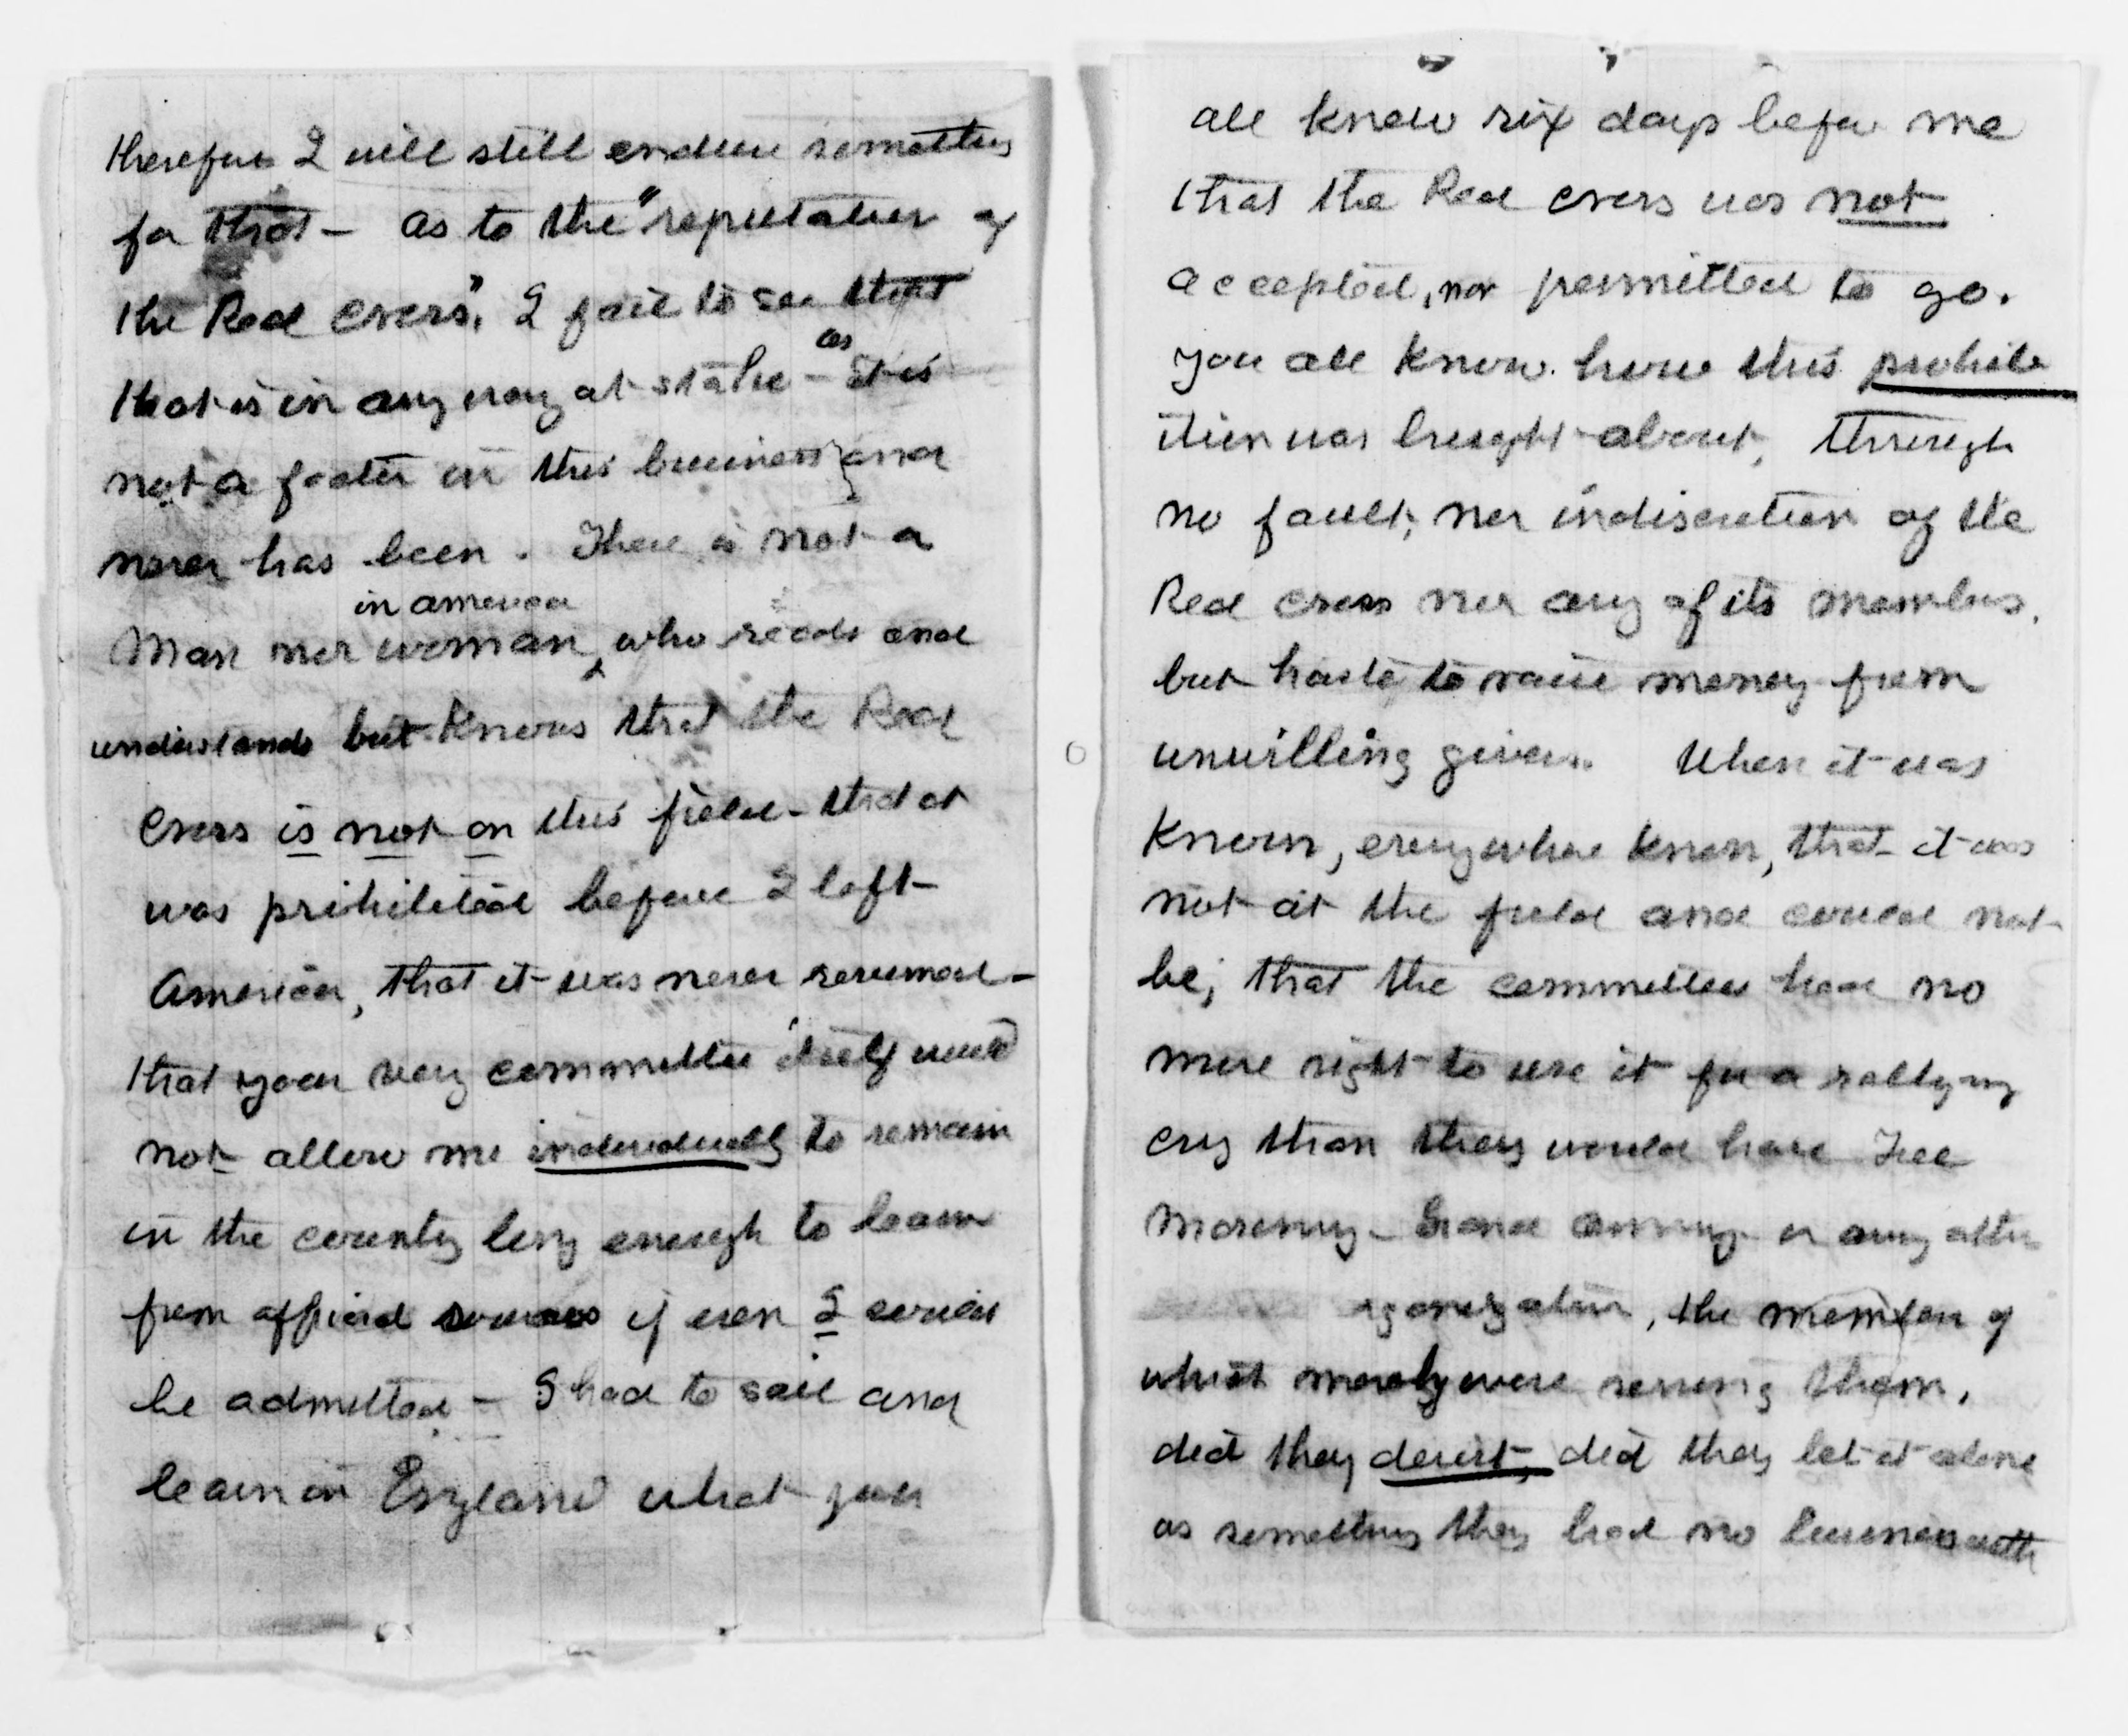 therefore I will still endure something
for that – as to the "reputation of
the Red Cross". I fail to see that
that is in any way at stake – as it is
not a factor in this business and
never has been. There is not a
man nor woman in America who reads and
understands but knows that the Red
Cross is not on this field – that it
was prihibited before I left
America, that it was never resumed –
that your very committee itself would
not allow me individually to remain
in the country long enough to learn
from official sources if even I could
be admitted – I had to sail and
learn in England what you
all knew six days before me
that the Red Cross was not
accepted, nor permitted to go.
You all know how this prohib
ition was brought about, through
no fault, nor indiscretion of the
Red Cross nor any of its members.
but haste to raise money from
unwilling givers. When it was
known, everywhere known, that it was
not at the field and could not
be; that the committees had no
more right to use it for a rallying
cry than they would have Free
Masonry – Grand Army or any other
organization, the members of
which merely were serving them,
did they desist, did they let it alone
as something they had no business with